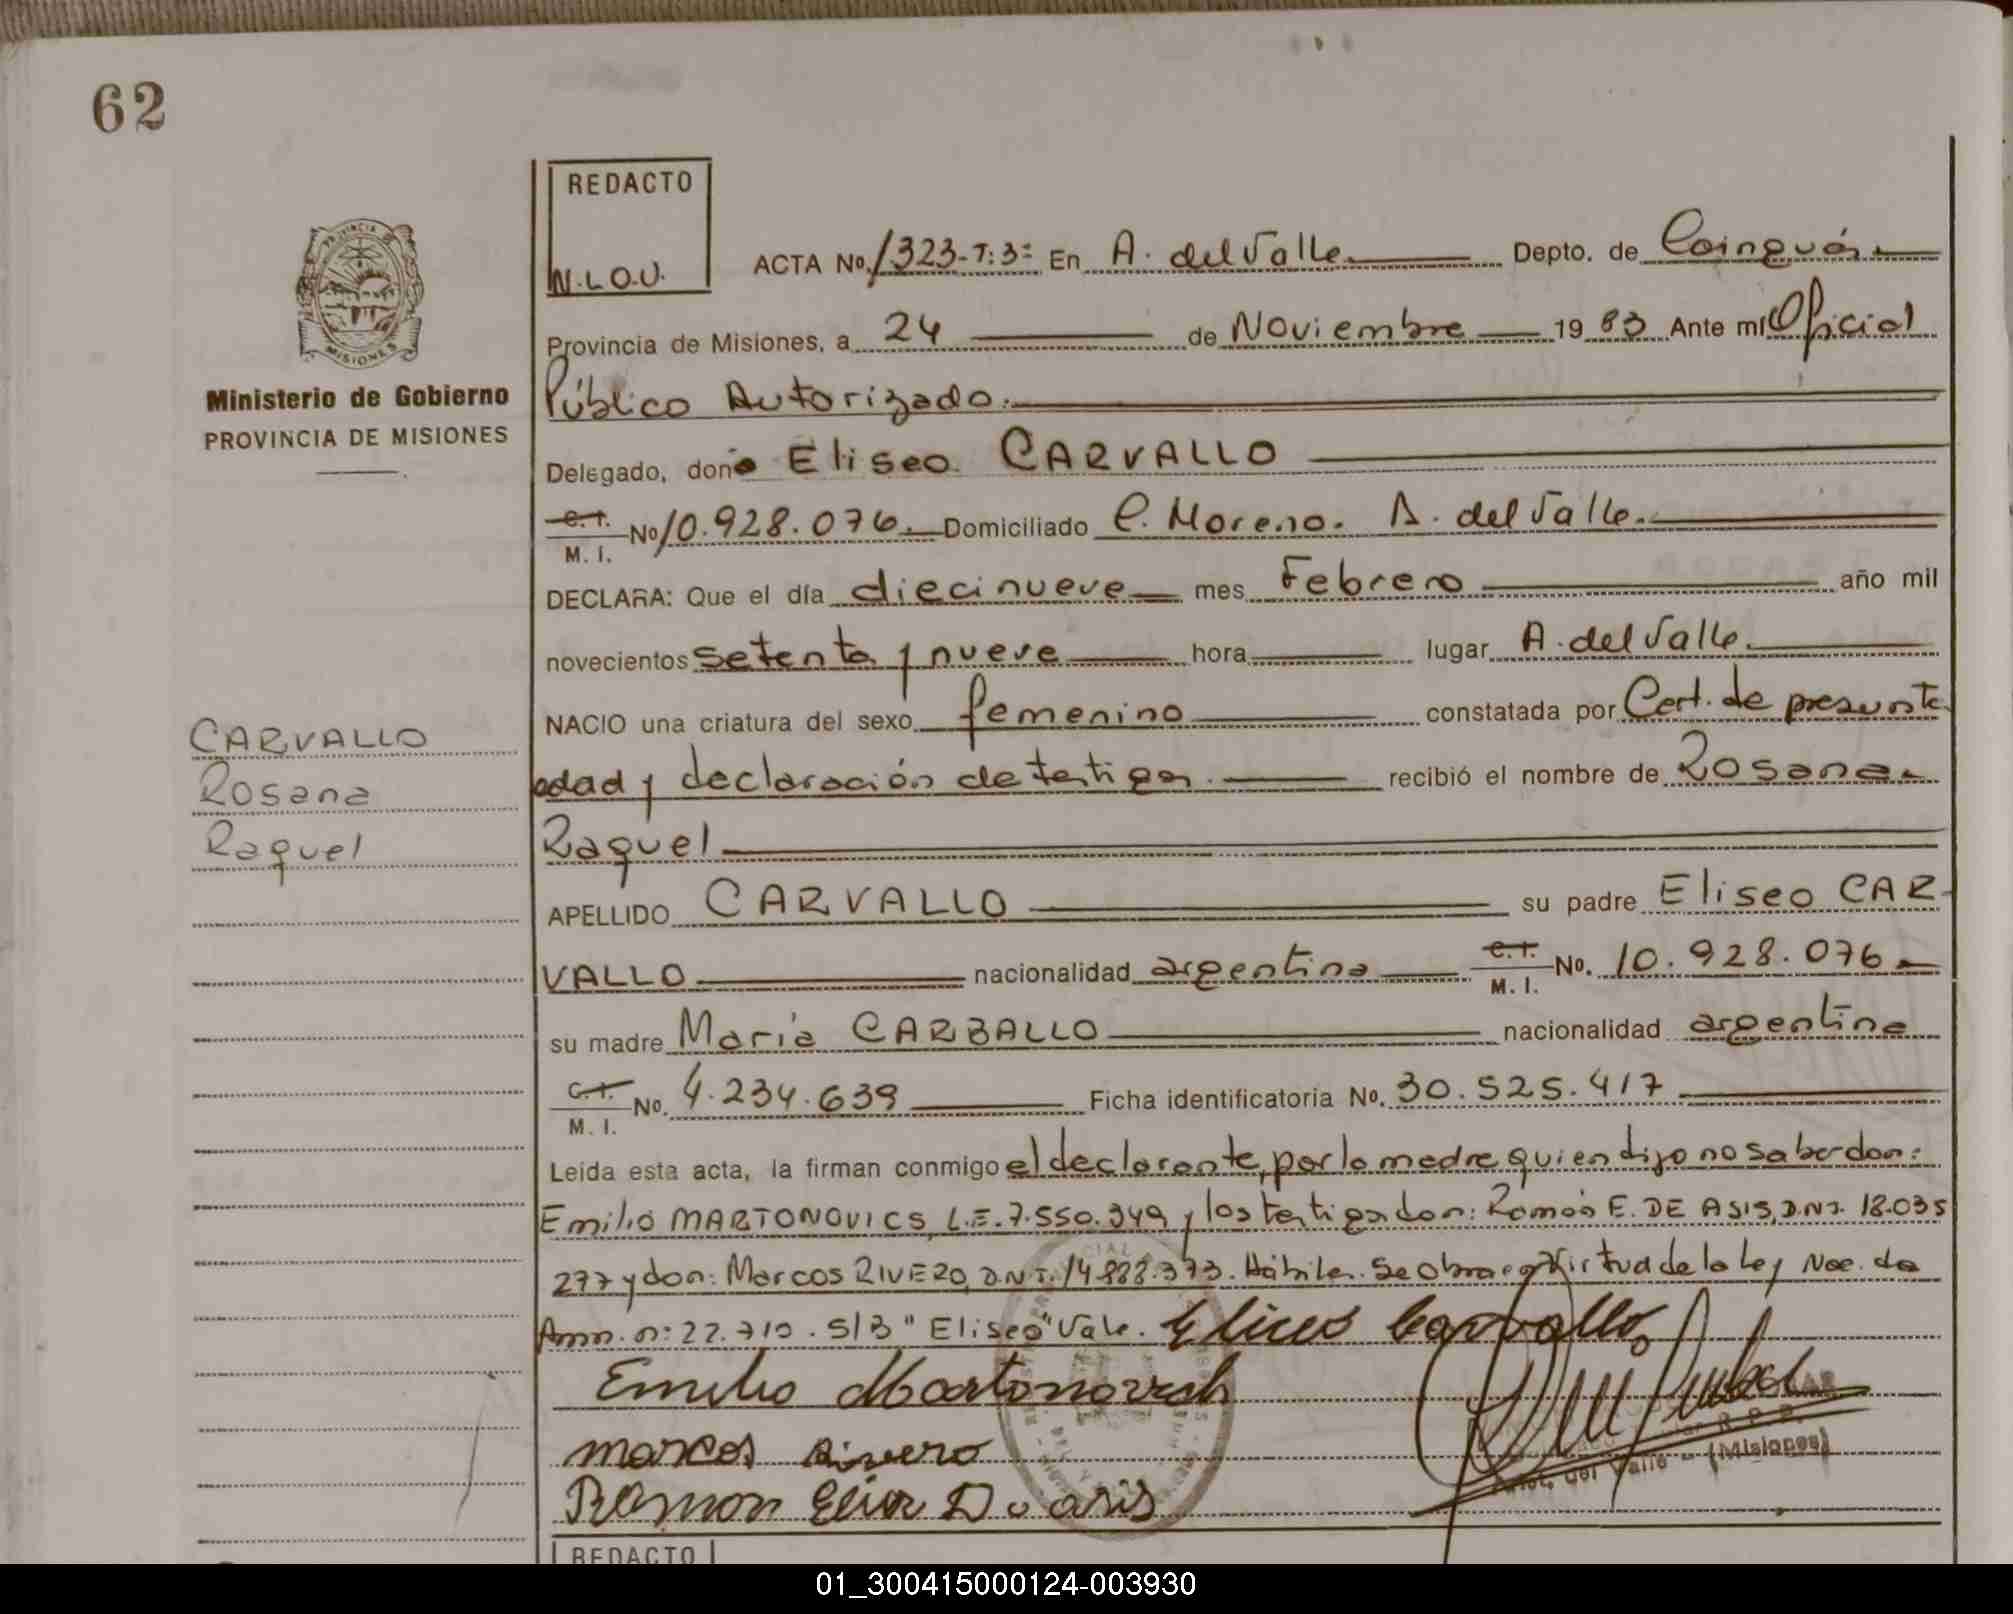 62
REDACTO
N.L.O.U.
ACTA No. 1323-T:3º En A. del Valle Depto. de Cainguás
Provincia de Misiones, a 24 de Noviembre 1983 Ante mí Oficial
Público Autorizado.
Delegado, don Eliseo CARVALLO
C.I. M. I. No 10.928.076. Domiciliado C. Moreno. A. del Valle.
DECLARA: Que el día diecinueve mes Febrero año mil
novecientos setenta y nueve hora lugar A. del Valle.
NACIO una criatura del sexo femenino constatada por Cert. de presunta
edad y declaración de testigos. recibió el nombre de Rosana
Raquel
APELLIDO CARVALLO su padre Eliseo CAR-
VALLO nacionalidad argentina C.I. M. I. No. 10.928.076
su madre María CARBALLO nacionalidad argentina
C.I. M. I. No. 4.234.639 Ficha identificatoria No. 30.525.417
Leída esta acta, la firman conmigo el declarante, por la madre quien dijo no saber don:
Emilio MARTONOVICS, L.E. 7.550.349 y los testigos don: Ramón E. DE ASIS, D.N.I. 18.035
277 y don: Marcos RIVERO, D.N.I. 14.888.373. Hábiles. Se obra en virtud de la Ley Nac. de
Amn. n: 22.710. S/B "Eliseo" Vale. Eliceo Carvallo
Emilio Martonovich
Marcos Rivero
Ramon De asis
del Valle - (Misiones)
PROVINCIA
MISIONES
Ministerio de Gobierno
PROVINCIA DE MISIONES
CARVALLO
Rosana
Raquel
REDACTO
01_300415000124-003930